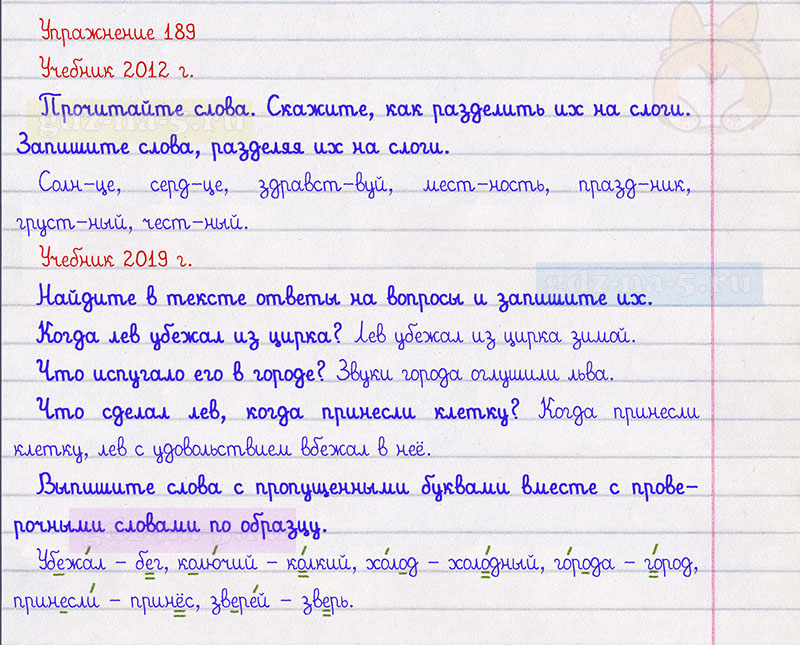 Упражнение 189
Учебник 2012 г.
Прочитайте слова. Скажите, как разделить их на слоги.
gdz-na-5.ru
Запишите слова, разделяя их на слоги.
Солн-це, серд-це, здравст-вуй, мест-ность, празд-ник,
груст-ный, чест-ный.
Учебник 2019 г.
gdz-na-5.ru
Найдите в тексте ответы на вопросы и запишите их.
Когда лев убежал из цирка? Лев убежал из цирка зимой.
Что испугало его в городе? Звуки города оглушили льва.
Что сделал лев, когда принесли клетку? Когда принесли
клетку, лев с удовольствием вбежал в неё.
Выпишите слова с пропущенными буквами вместе с прове-
рочными словами по образцу.
gdz-na-5.ru
Убежа́л – бег, колю́чий – ко́лкий, хо́лод – холо́дный, го́рода – го́род,
принесли́ – принёс, звере́й – зверь.